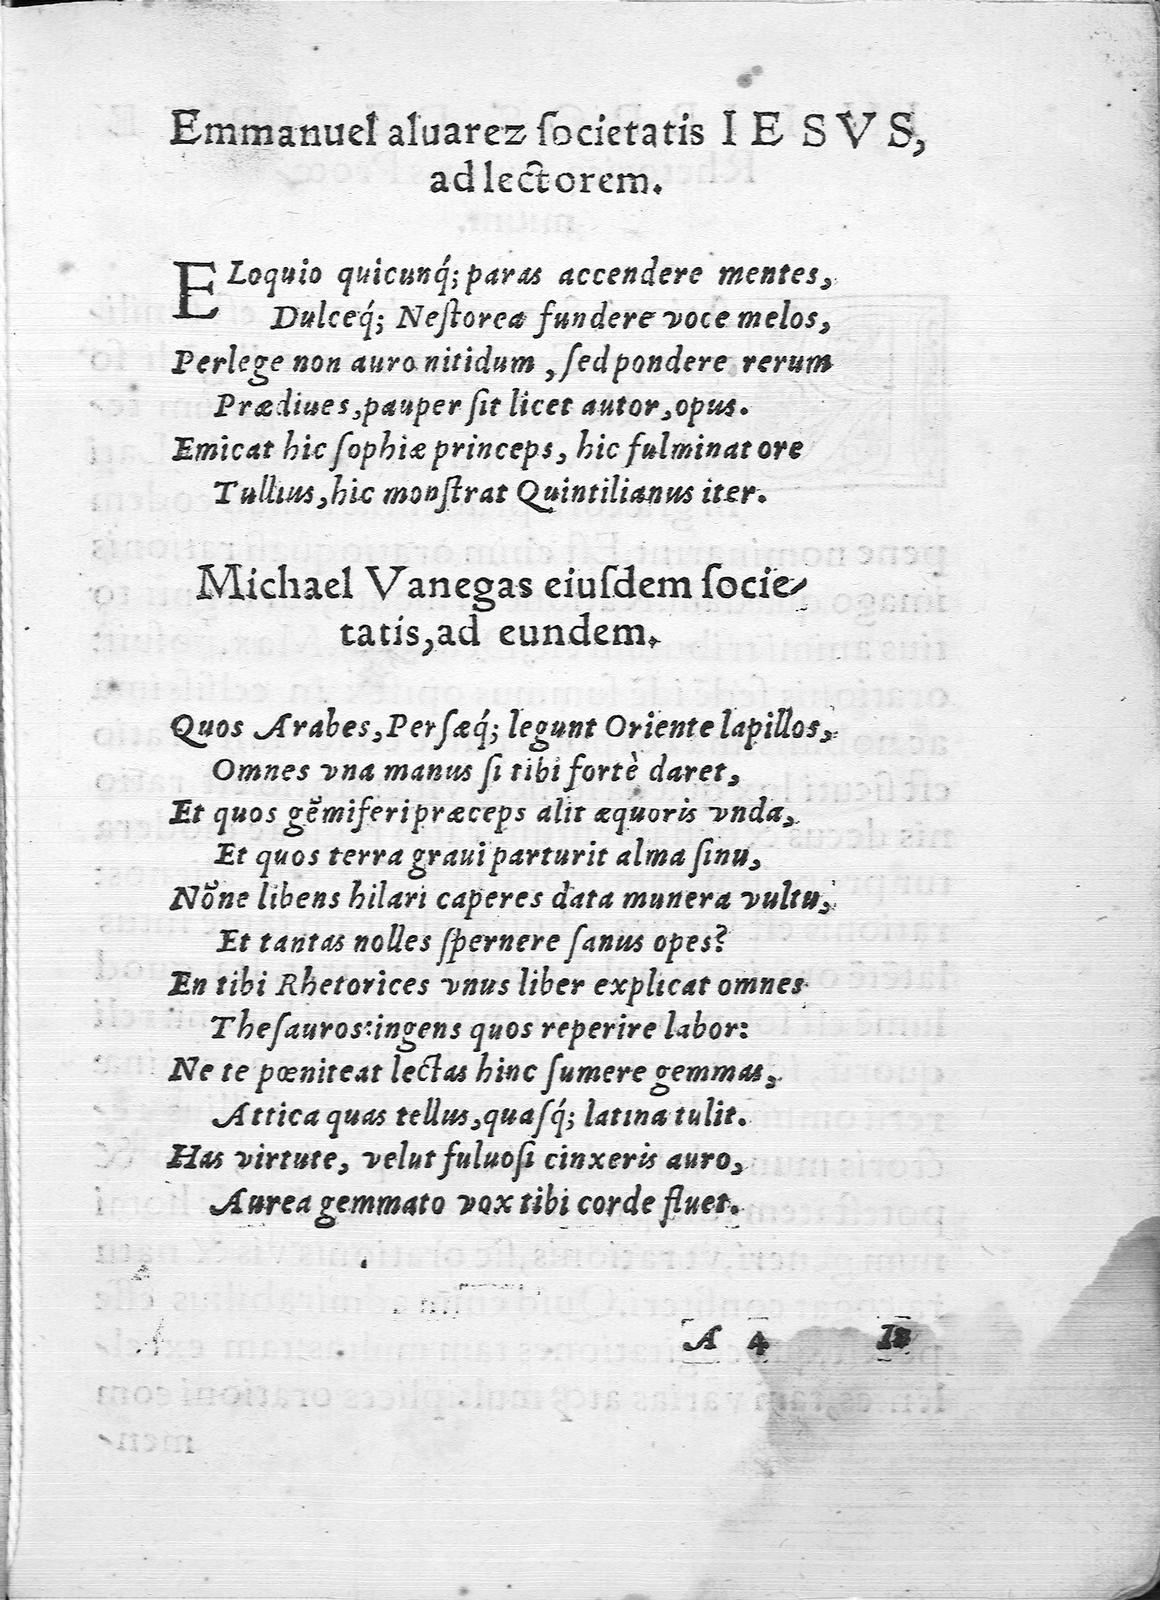 Emmanuel aluarez ſocietatis IESVS,
ad lectorem.
ELoquio quicunq́; paras accendere mentes,
Dulceq́; Neſtorea fundere voce melos,
Perlege non auro nitidum, ſed pondere rerum
Prædiues, pauper ſit licet autor, opus.
Emicat hic ſophiæ princeps, hic fulminat ore
Tullius, hic monſtrat Quintilianus iter.
Michael Vanegas eiuſdem ſocie-
tatis, ad eundem.
Quos Arabes, Perſæq́; legunt Oriente lapillos,
Omnes vna manus ſi tibi fortè daret,
Et quos gẽmiferi præceps alit æquoris vnda,
Et quos terra graui parturit alma ſinu,
Nõne libens hilari caperes data munera vultu,
Et tantas nolles ſpernere ſanus opes?
En tibi Rhetorices vnus liber explicat omnes
Theſauros: ingens quos reperire labor:
Ne te pœniteat lectas hinc ſumere gemmas,
Attica quas tellus, quaſq́; latina tulit.
Has virtute, velut fuluoſi cinxeris auro,
Aurea gemmato vox tibi corde fluet.
A 4